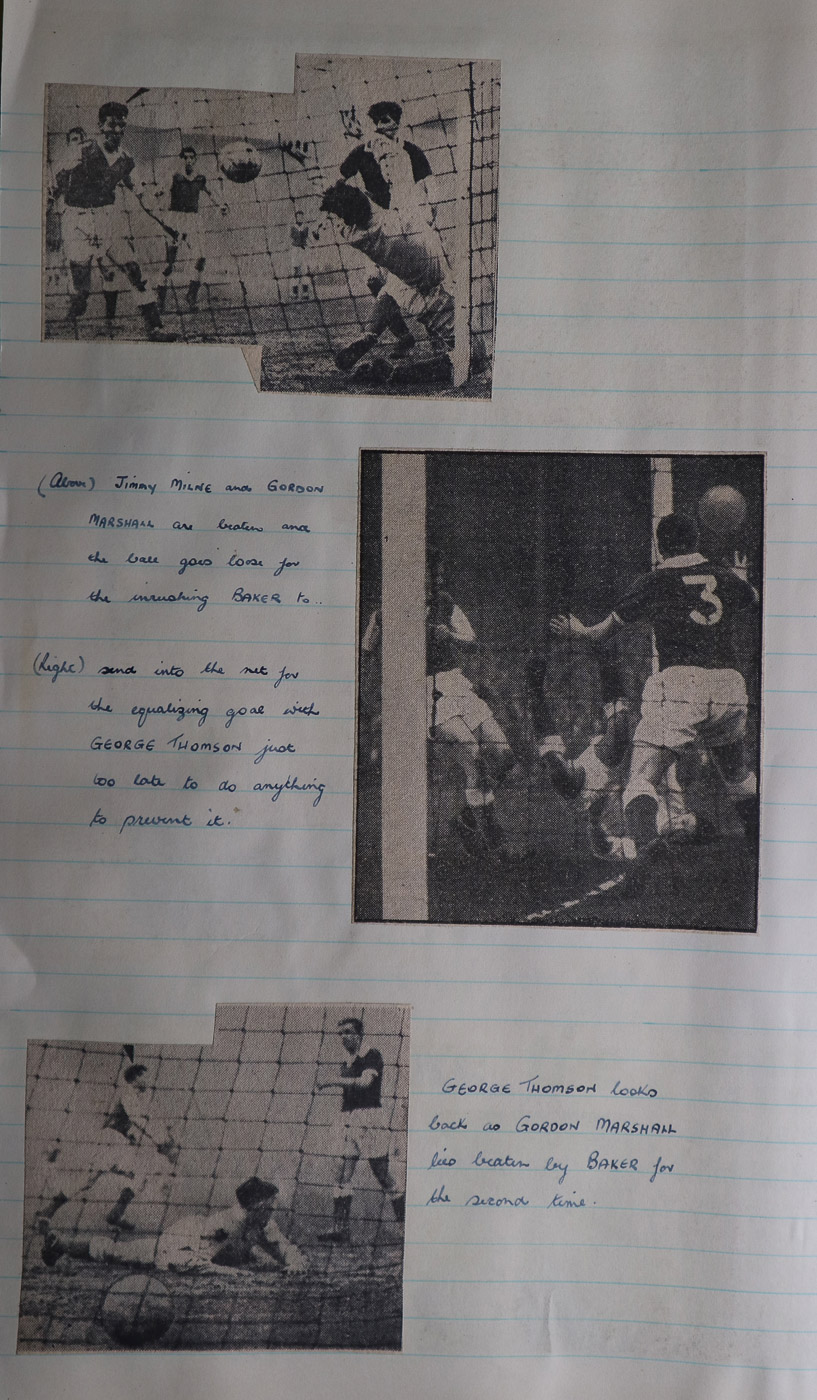 (Above) JIMMY MILNE and GORDON
MARSHALL are beaten and
the ball goes loose for
the inrushing BAKER to..
3
(Right) send into the net for
the equalizing goal with
GEORGE THOMSON just
too late to do anything
to prevent it.
GEORGE THOMSON looks
back as GORDON MARSHALL
lies beaten by BAKER for
the second time.